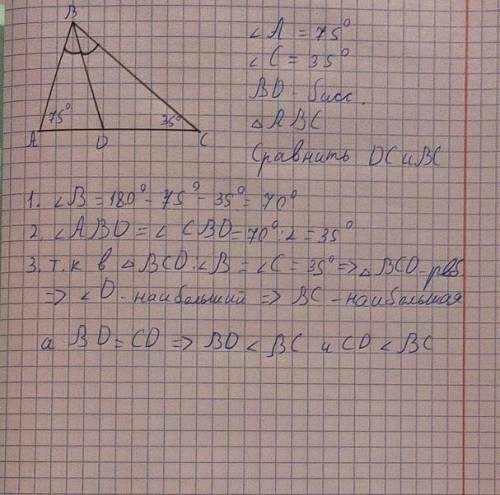 B
∠A = 75°
∠C = 35°
BD - бисс.
△ABC
Сравнить DC и BC
75°
35°
A
D
C
1. ∠B = 180° - 75° - 35° = 70°
2. ∠ABD = ∠CBD = 70° : 2 = 35°
3. т.к в △BCD ∠B = ∠C = 35° => △BCD - рвб
=> ∠D - наибольший => BC - наибольшая
а BD = CD => BD < BC и CD < BC